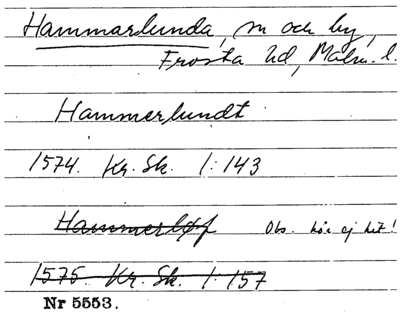 Hammarlunda, sn och by,
Frosta hd, Malm. l.
Hammerlundt
1574. Kr. Sk. 1:143
Hammerløf Obs. hör ej hit!
1575. Kr. Sk. 1:157
Nr 5553.